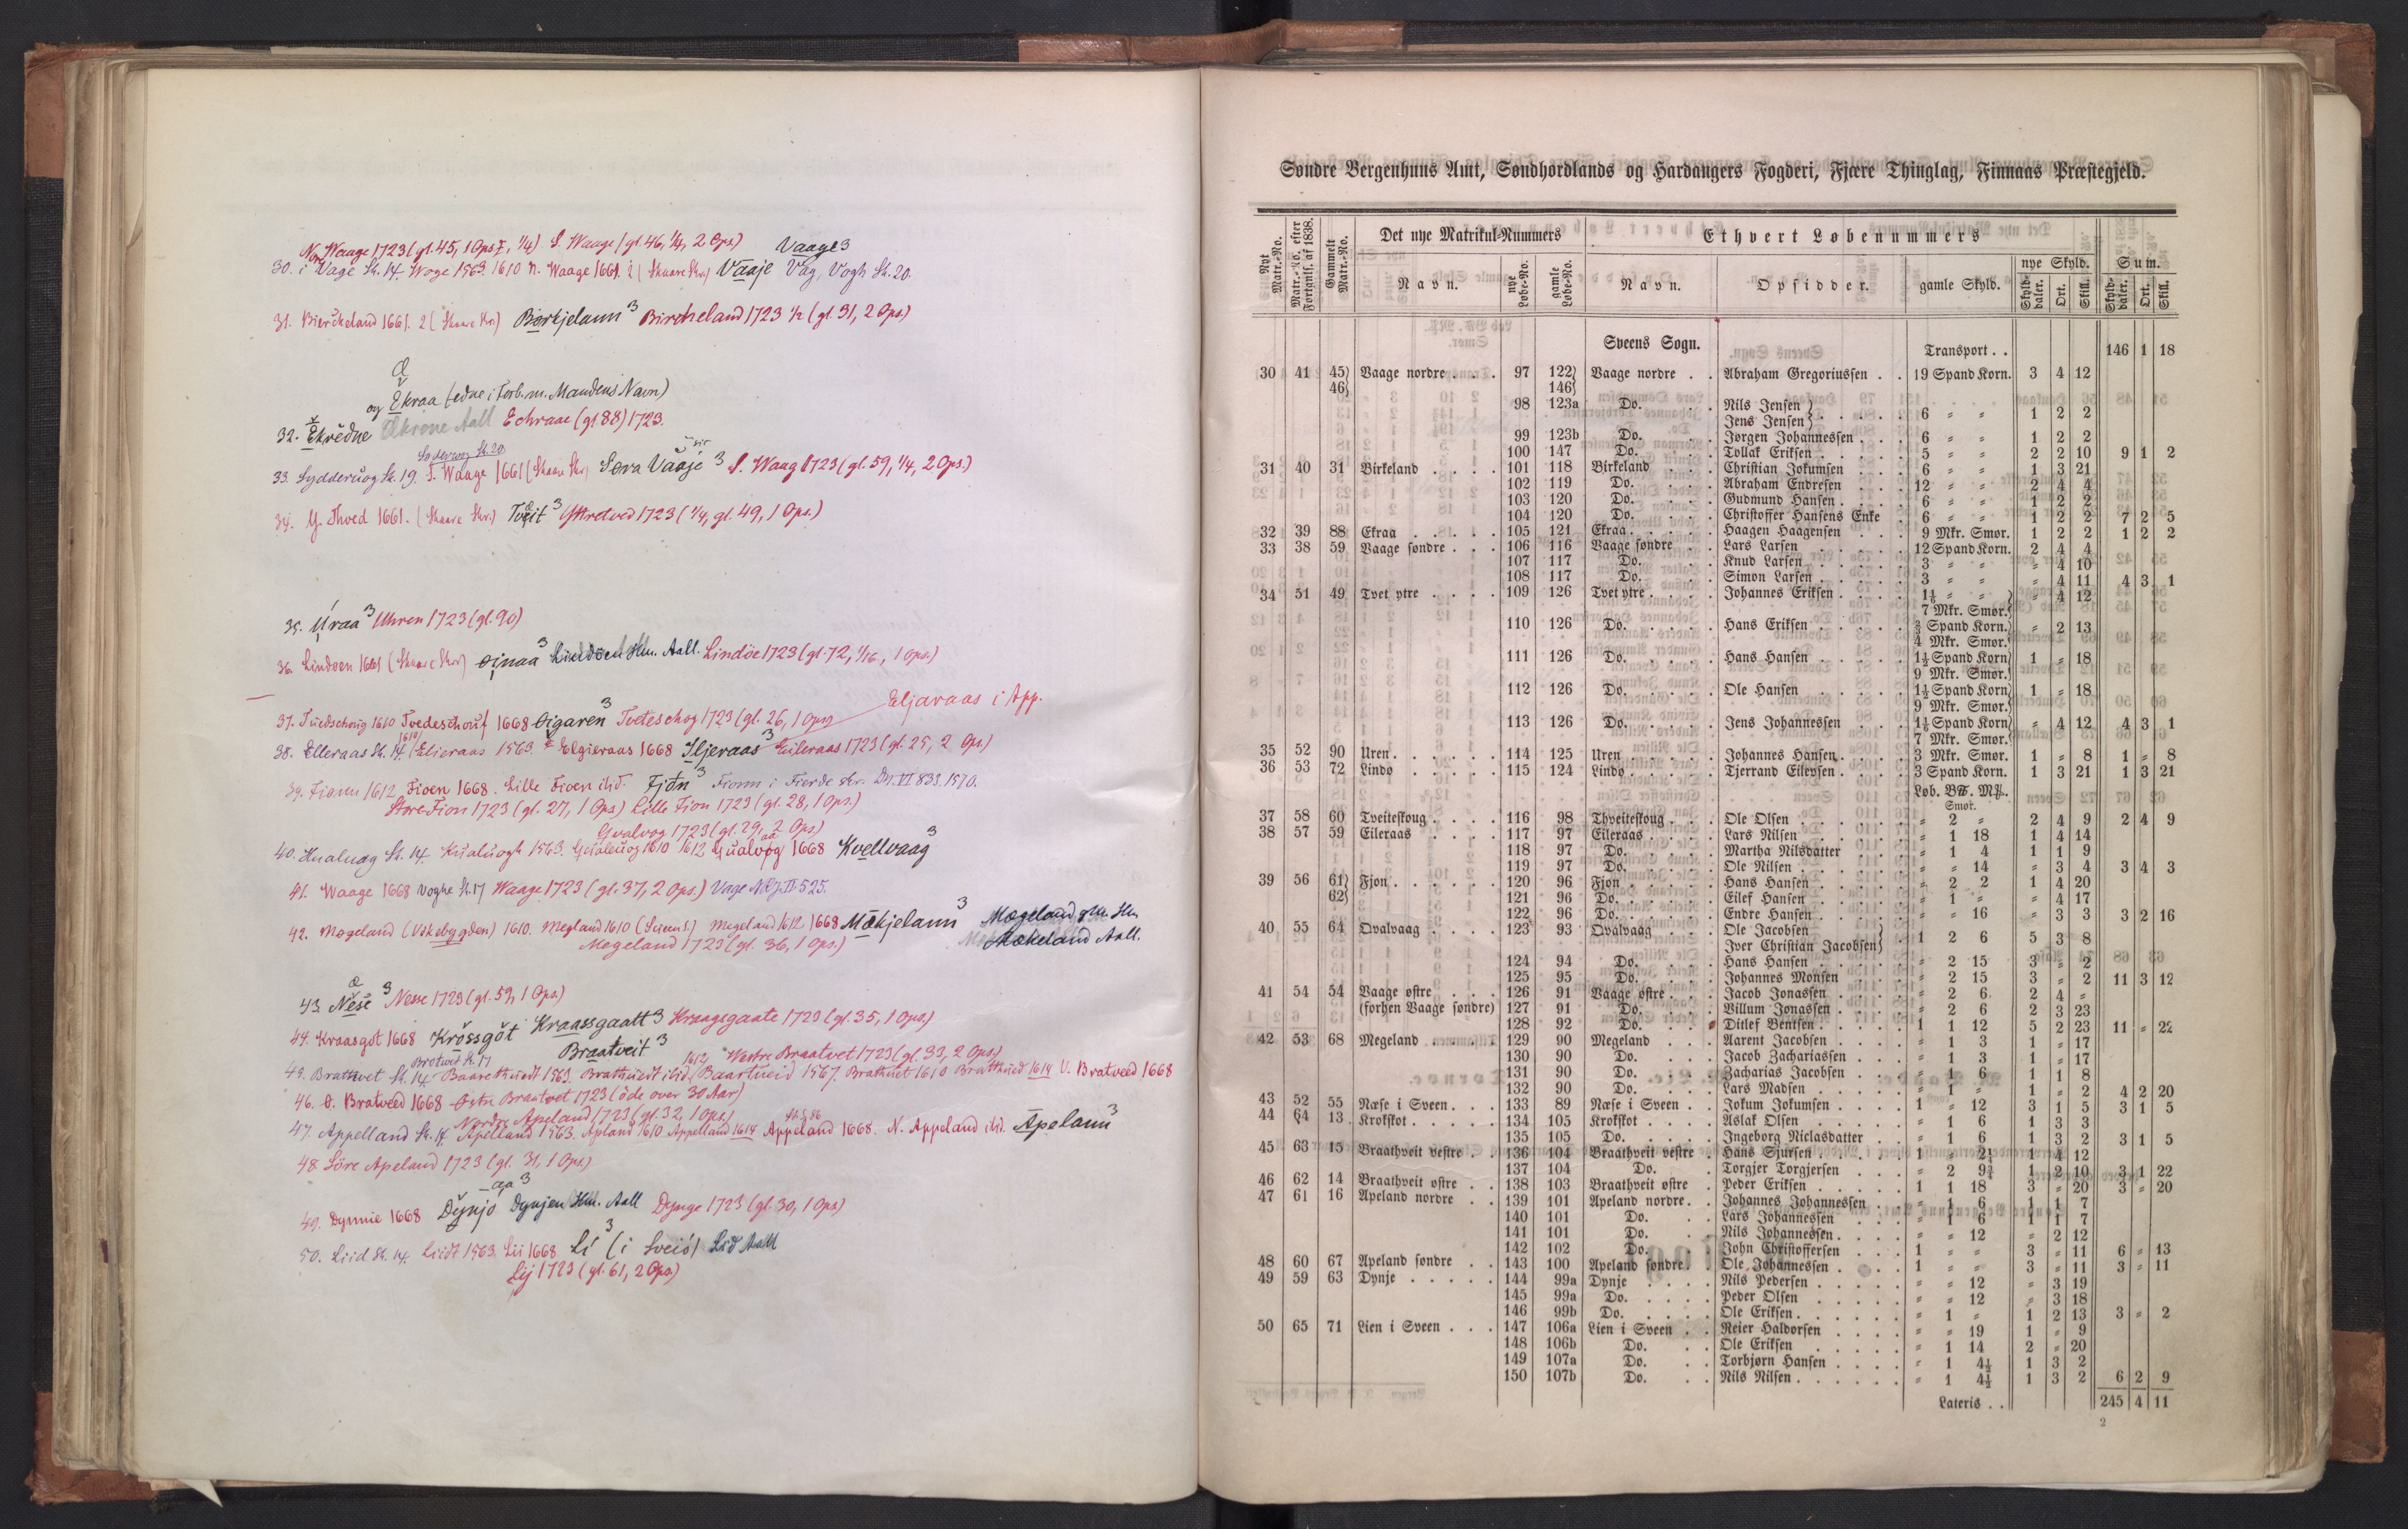 Nore Waage 1723 (gl. 45, 1 Ops. , 1/4) S. Waage (gl. 46, 1/4, 2 Ops.) Vaage 3
30. i Vage St. 14. Woge 1563. 1610 n. Waage 1661. 2 (Skaare Skr.) Vaaje Vag, Vogh St. 20.
31. Bierckeland 1661. 2 (Skaare Skr.) Børkjelann 3 Bircheland 1723 1/2 (gl. 31, 2 Ops.)
Æ
og Ekraa (edne i Forb. m. Mandens Navn)
32. Ekrедne Ækrene Aall Echraae (gl. 88) 1723.
Søderwog St. 20
33. Sydderuog St. 19. S. Waage 1661 (Skaare Skr.) Søra Vaaje 3 S. Waag 1723 (gl. 59, 1/4, 2 Ops.)
34. Y. Thved 1661. (Skaare Skr.) Tveit 3 Yttretved 1723 (1/4, gl. 49, 1 Ops.)
35. Uraa 3 Uhren 1723 (gl. 90)
36. Lindøen 1661 (Skaare Skr.) øinaa 3 Lindöen Hm. Aall. Lindöe 1723 (gl. 72, 1/16, 1 Ops.)
Eljaraas i App.
37. Tuedschoug 1610 Tvedeschouf 1668 Øigaren 3 Tveteschog 1723 (gl. 26, 1 Ops.)
38. Elleraas St. 14. Elieraas 1563. Elgieraas 1668 Iljeraas 3 Eileraas 1723 (gl. 25, 2 Ops.)
39. Fionen 1612 Fioen 1668. Lille Fioen ibid. Fjøn 3 Fionn i Fierde skr. Dn. VI 833. 1570.
Store Fion 1723 (gl. 27, 1 Ops.) Lille Fion 1723 (gl. 28, 1 Ops.)
Qvalvog 1723 (gl. 29, 2 Ops.)
40. Hualuag St. 14. Kualuogh 1563. Qualeuog 1610 1612 Qualvog 1668 Kvellvaag 3
41. Waage 1668 Voghe St. 17 Waage 1723 (gl. 37, 2 Ops.) Vage NRJ. II 525.
42. Mogeland (Vikebygden) 1610. Megland 1610 (Sveen S.) Megeland 1612. 1668 Mækjelann 3 Mægeland Hm.
Megeland 1723 (gl. 36, 1 Ops.) Mækeland Aall.
æ
43. Nese 3 Nesse 1723 (gl. 59, 1 Ops.)
44. Kraasgot 1668 Krossgöt Kraassgaatt 3 Kraagegaate 1723 (gl. 35, 1 Ops.)
Brotveit St. 17 Braatveit 3 1612 Westre Braatvet 1723 (gl. 33, 2 Ops.)
45. Brattvet St. 14 Baarethuedt 1563. Bratthuedt ibid. Baartueid 1567. Brathuet 1610 Bratthued 1614 V. Bratveed 1668
46. Ø. Bratveed 1668 Østre Braatvet 1723 (öde over 30 Aar)
Nordre Apeland 1723 (gl. 32, 1 Ops.)
47. Appelland St. 14. Apelland 1563. Apland 1610 Appelland 1614 Appeland 1668. N. Appeland ibid. Apelann 3
48. Söre Apeland 1723 (gl. 31, 1 Ops.)
aa 3
49. Dynnie 1668 Dynjo Dynjen Hm. Aall Dynge 1723 (gl. 30, 1 Ops.)
50. Liid St. 14. Liidt 1563. Lii 1668 Li 3 (i Sveio) Lid Aall
Lij 1723 (gl. 61, 2 Ops.)
Søndre Bergenhuus Amt, Søndhordlands og Hardangers Fogderi, Fjære Thinglag, Finnaas Præstegjeld.
Nyt Matr.-No. Matr.-No. efter Fortegnelf. af 1838. Gammelt Matr.-No. Det nye Matrikul-Nummers Ethvert Løbenummers
Navn. nye Løbe-No. gamle Løbe-No. Navn. Opsidder. gamle Skyld. nye Skyld. Sum.
Skylddaler. Ort. Skill. Skylddaler. Ort. Skill.
Sveens Sogn. Transport . . 146 1 18
30 41 45) Vaage nordre . . . 97 122) Vaage nordre . . Abraham Gregoriussen . . 19 Spand Korn. 3 4 12
46) 146)
98 123a Do. Nils Jensen }
Jens Jensen } . . . . 6 " " 1 2 2
99 123b Do. Jørgen Johannessen . . . 6 " " 1 2 2
100 147 Do. Tollak Eriksen . . . . . 5 " " 2 2 10 9 1 2
31 40 31 Birkeland . . . . 101 118 Birkeland . . . Christian Jokumsen . . . 6 " " 1 3 21
102 119 Do. Abraham Endresen . . . 12 " " 2 4 4
103 120 Do. Gudmund Hansen . . . . 6 " " 1 2 2
104 120 Do. Christoffer Hansens Enke . 6 " " 1 2 2 7 2 5
32 39 88 Ekraa . . . . . 105 121 Ekraa . . . . . Haagen Haagensen . . . 9 Mkr. Smør. 1 2 2 1 2 2
33 38 59 Vaage søndre . . . 106 116 Vaage søndre . . Lars Larsen . . . . . 12 Spand Korn. 2 4 4
107 117 Do. Knud Larsen . . . . . 3 " " " 4 10
108 117 Do. Simon Larsen . . . . . 3 " " " 4 11 4 3 1
34 51 49 Tvet ytre . . . . 109 126 Tvet ytre . . . . Johannes Eriksen . . . . 1 1/6 " " ) " 4 12
7 Mkr. Smør.)
110 126 Do. Hans Eriksen . . . . . 3/8 Spand Korn.) " 2 13
4 Mkr. Smør.)
111 126 Do. Hans Hansen . . . . . 1 1/2 Spand Korn) 1 " 18
9 Mkr. Smør.)
112 126 Do. Ole Hansen . . . . . 1 1/2 Spand Korn) 1 " 18
9 Mkr. Smør.)
113 126 Do. Jens Johannessen . . . . 1 1/6 Spand Korn) " 4 12 4 3 1
7 Mkr. Smør.)
35 52 90 Uren . . . . . . 114 125 Uren . . . . . Johannes Hansen . . . . 3 Mkr. Smør. 1 " 8 1 " 8
36 53 72 Lindø . . . . . 115 124 Lindø . . . . . Tjerrand Eilevsen . . . . 3 Spand Korn. 1 3 21 1 3 21
Løb. B℔. M℔.
Smør.
37 58 60 Tveiteskoug . . . 116 98 Thveiteskoug . . . Ole Olsen . . . . . . " 2 " 2 4 9 2 4 9
38 57 59 Eileraas . . . . 117 97 Eileraas . . . . Lars Nilsen . . . . . " 1 18 1 4 14
118 97 Do. Martha Nilsdatter . . . " 1 4 1 1 9
119 97 Do. Ole Nilsen . . . . . . " " 14 " 3 4 3 4 3
39 56 61) Fjon . . . . . . 120 96 Fjon . . . . . Hans Hansen . . . . . " 2 2 1 4 20
62) 121 96 Do. Eilef Hansen . . . . . " 1 " " 4 17
122 96 Do. Endre Hansen . . . . . " " 16 " 3 3 3 2 16
40 55 64 Qvalvaag . . . . 123 93 Qvalvaag . . . Ole Jacobsen }
Iver Christian Jacobsen } . 1 2 6 5 3 8
124 94 Do. Hans Hansen . . . . . " 2 15 3 " 2
125 95 Do. Johannes Monsen . . . " 2 15 3 " 2 11 3 12
41 54 54 Vaage østre . . . 126 91 Vaage østre . . . Jacob Jonassen . . . . " 2 6 2 4 "
(forhen Vaage søndre) 127 91 Do. Villum Jonassen . . . . " 2 6 2 3 23
128 92 Do. Ditlef Bentsen . . . . . 1 1 12 5 2 23 11 " 22
42 53 68 Megeland . . . . 129 90 Megeland . . . Aarent Jacobsen . . . . " 1 3 1 " 17
130 90 Do. Jacob Zachariassen . . . " 1 3 1 " 17
131 90 Do. Zacharias Jacobsen . . . " 1 6 1 1 8
132 90 Do. Lars Madsen . . . . . " 1 " 1 " 2 4 2 20
43 52 55 Næse i Sveen . . . 133 89 Næse i Sveen . . Jokum Jokumsen . . . . 1 " 12 3 1 5 3 1 5
44 64 13 Krokskot . . . . . 134 105 Krokskot . . . . Aslak Olsen . . . . . " 1 6 1 3 3
135 105 Do. Ingeborg Niclasdatter . . " 1 6 1 3 2 3 1 5
45 63 15 Braathveit vestre . . 136 104 Braathveit vestre . Hans Sjursen . . . . . 1 " 2 1/4 1 4 12
137 104 Do. Torgjer Torgjersen . . . " 2 9 3/4 1 2 10 3 1 22
46 62 14 Braathveit østre . . 138 103 Braathveit østre . Peder Eriksen . . . . . 1 1 18 3 " 20 3 " 20
47 61 16 Apeland nordre . . 139 101 Apeland nordre . Johannes Johannessen . . " 1 6 1 1 7
140 101 Do. Lars Johannessen . . . " 1 6 1 1 7
141 101 Do. Nils Johannessen . . . . " " 12 " 2 12
142 102 Do. John Christoffersen . . . 1 " " 3 " 11 6 " 13
48 60 67 Apeland søndre . . 143 100 Apeland søndre . Ole Johannessen . . . . 1 " " 3 " 11 3 " 11
49 59 63 Dynje . . . . . 144 99a Dynje . . . . Nils Pedersen . . . . . " " 12 " 3 19
145 99a Do. Peder Olsen . . . . . " " 12 " 3 18
146 99b Do. Ole Eriksen . . . . . . " 1 " 1 2 13 3 " 2
50 65 71 Lien i Sveen . . . 147 106a Lien i Sveen . . Reier Haldorsen . . . . " " 19 1 " 9
148 106b Do. Ole Eriksen . . . . . " 1 14 2 " 20
149 107a Do. Torbjørn Hansen . . . . " 1 4 1/2 1 3 2
150 107b Do. Nils Nilsen . . . . . . " 1 4 1/2 1 3 2 6 2 9
Lateris . . 245 4 11
2